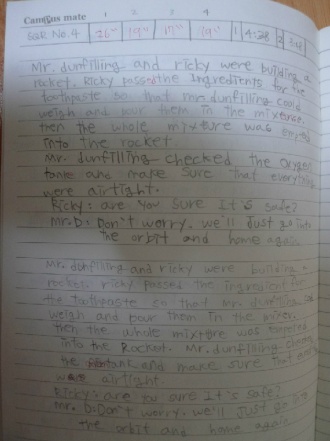 Campus mate
1 2 3 4
SSR No. 4 26" 19" 19" 1 4:28 2
Mr. dunfilling and ricky were building a
rocket. Ricky passed the Ingredients for the
toothpaste so that mr. dunfilling could
weigh and pour them in the mixense.
then the whole mixture was
into the rocket.
Mr. dunfilling checked the oxygen
tank and make sure that everything
were airtight.
Ricky: are you sure It's safe?
Mr.D: Don't worry. we'll Just go into
the orbit and home again
Mr. dunfilling and ricky were building a
rocket. ricky passed the ingredient for
the toothpaste so that Mr. dunfilling
weigh and pour them in the mixer.
then the whole mixture was
into the Rocket. Mr. dunfilling
the tank and make sure that
airtight.
Ricky: are you sure It's safe?
Mr. D: Don't worry. we'll Just go
the orbit and home again